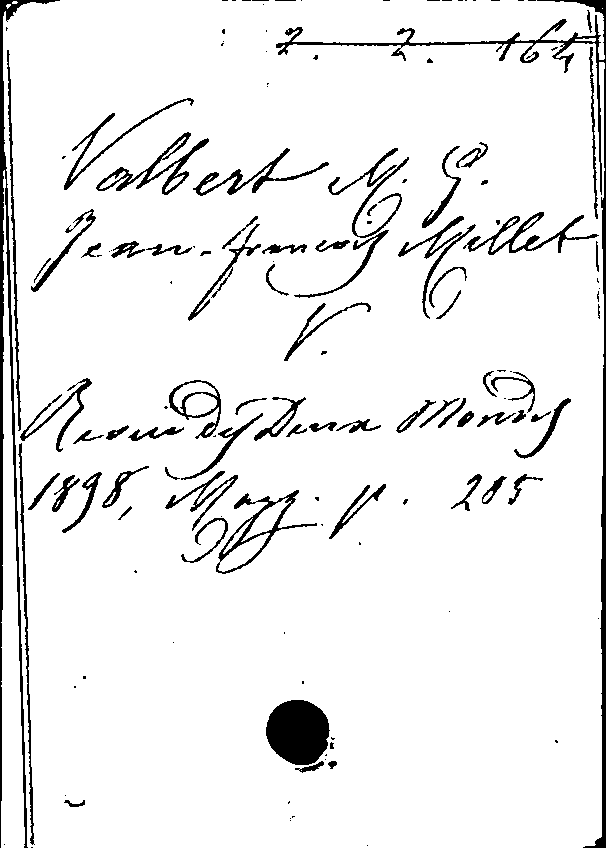 2. 2. 164
Valbert M. G.
Jean-françois Millet
V.
Revue des Deux Mondes
1898, Marz. p. 205